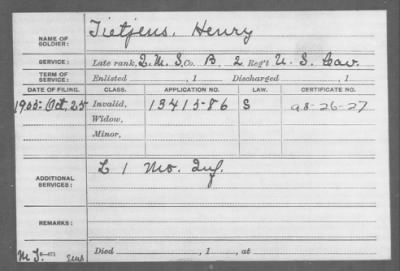 NAME OF SOLDIER: Tietjens, Henry
SERVICE: Late rank, Q. M. S, Co. B, 2 Reg't U. S. Cav.
TERM OF SERVICE: Enlisted , 1 Discharged , 1
DATE OF FILING. CLASS. APPLICATION NO. LAW. CERTIFICATE NO.
1905-Oct, 25 Invalid, 1341586 S 98-26-27
Widow,
Minor,
ADDITIONAL SERVICES: L 1 Mo. Inf.
REMARKS:
M J. Died , 1 , at